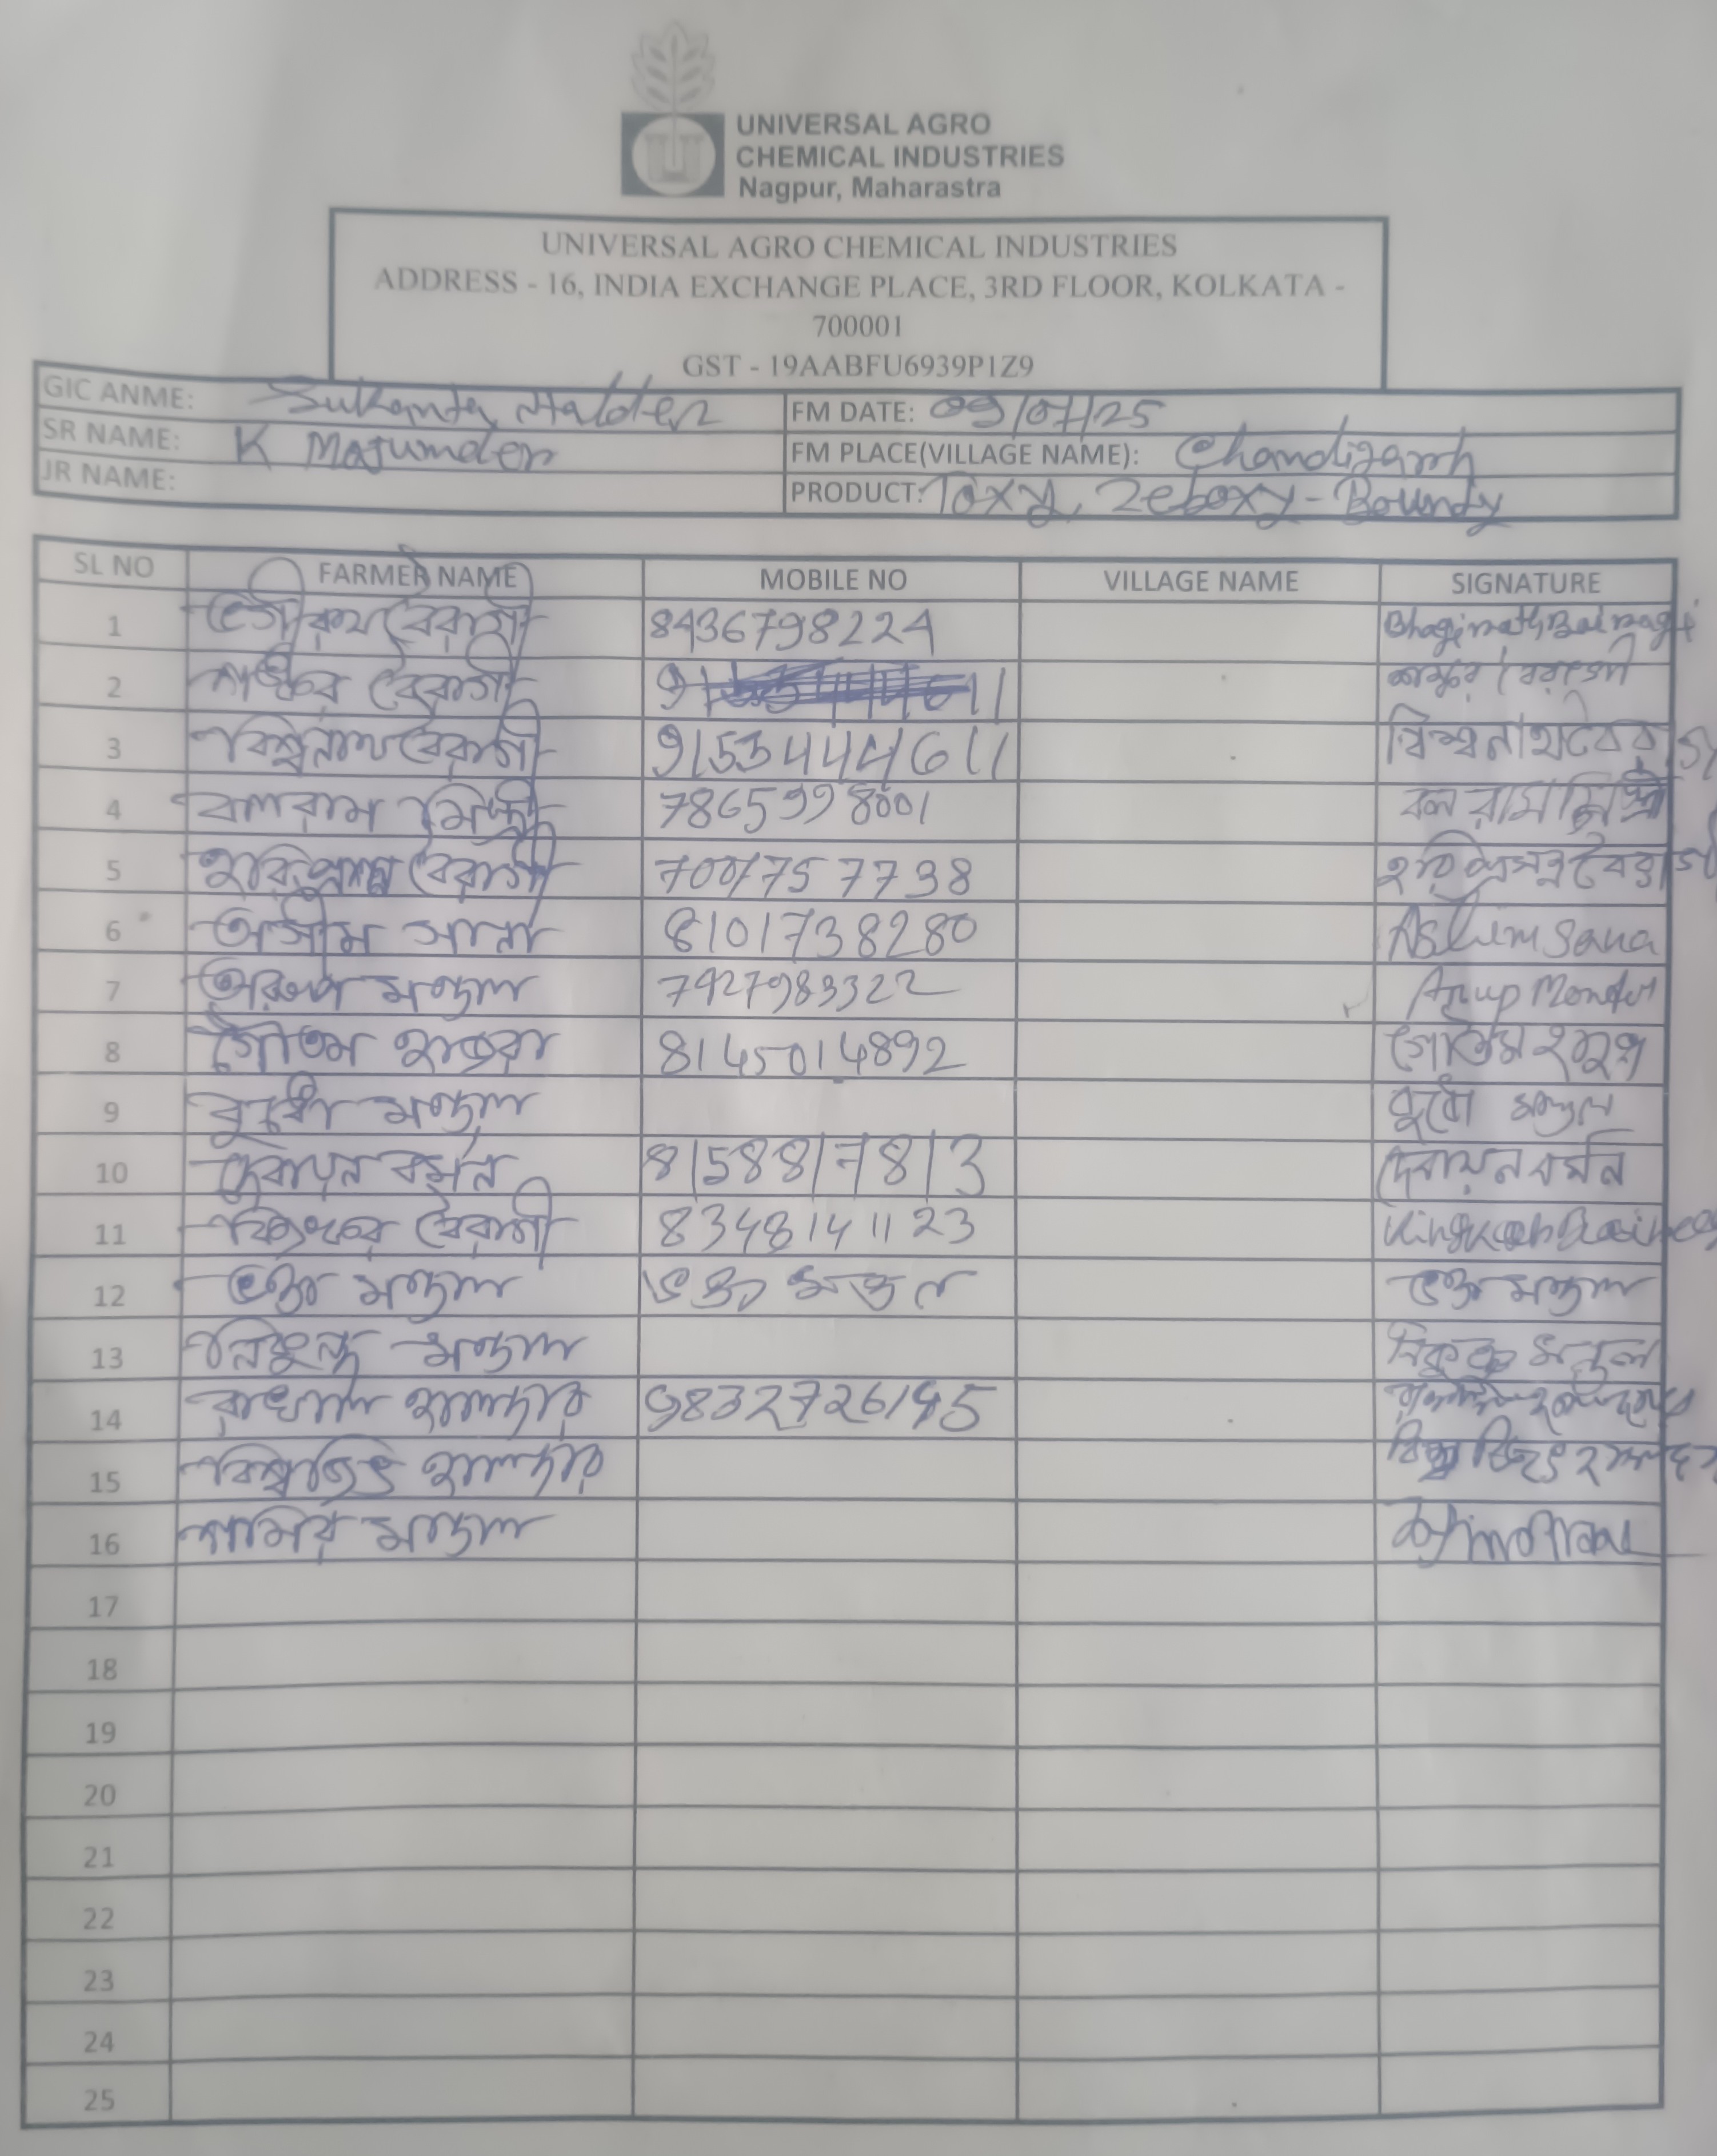 UNIVERSAL AGRO
CHEMICAL INDUSTRIES
Nagpur, Maharastra
UNIVERSAL AGRO CHEMICAL INDUSTRIES
ADDRESS - 16, INDIA EXCHANGE PLACE, 3RD FLOOR, KOLKATA -
700001
GST - 19AABFU6939P1Z9
GIC ANME: Sukanta Halder FM DATE: 09/07/25
SR NAME: K Majumder FM PLACE(VILLAGE NAME): Chandigarh
JR NAME: PRODUCT: Toxy, Zeboxy - Bounty
SL NO FARMER NAME MOBILE NO VILLAGE NAME SIGNATURE
1 ভগীরথ বৈরাগী 8436798224 Bhagirath Bairagi
2 শঙ্কর বৈরাগী শঙ্কর বৈরাগী
3 বিশ্বনাথ বৈরাগী 9153444611 বিশ্বনাথ বৈরাগী
4 বলরাম মিস্ত্রী 7865998001 বলরাম মিস্ত্রী
5 বৈরাগী 7001757738 হরিপ্রসন্ন বৈরাগী
6 অসীম সানা 8101738280 Ashim Sana
7 অরুপ মন্ডল Arup Mondal
8 গৌতম হাজরা 8145014892 গৌতম
9 মন্ডল মন্ডল
10 দেবায়ন বর্মন 8158817813 দেবায়ন বর্মন
11 কিংকর বৈরাগী 8348141123
12 ভক্ত মন্ডল ভক্ত মন্ডল ভক্ত মন্ডল
13 নিকুঞ্জ মন্ডল নিকুঞ্জ মন্ডল
14 রাখাল হালদার 9832726145
15 বিশ্বজিৎ হালদার বিশ্বজিৎ হালদার
16 মন্ডল
17
18
19
20
21
22
23
24
25